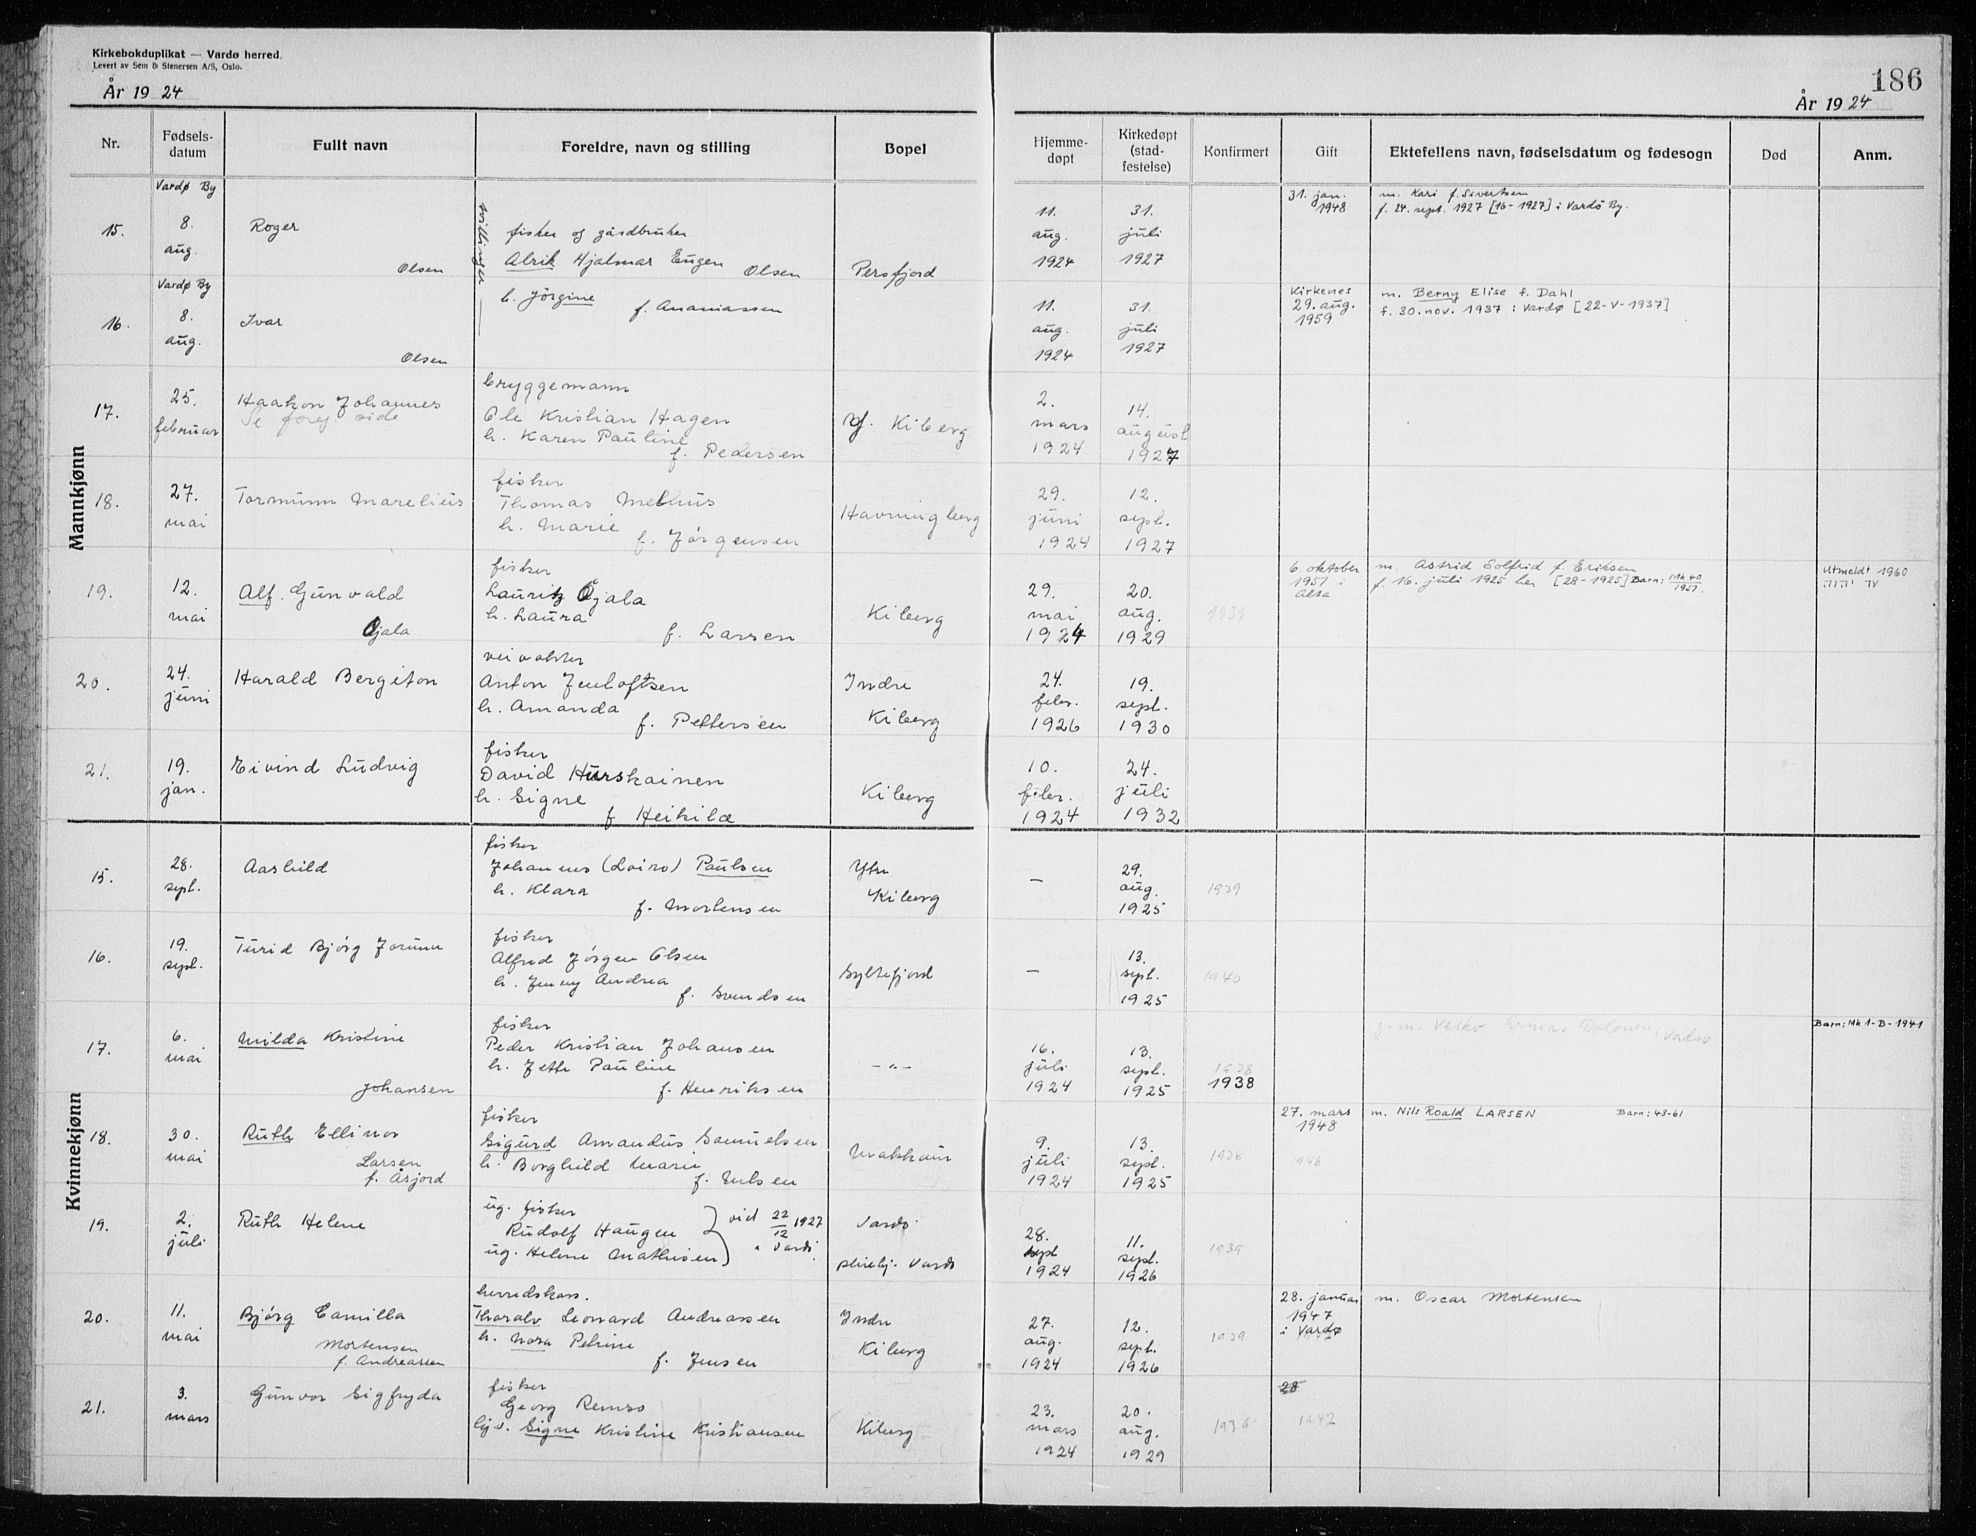 Kirkebokduplikat — Vardø herred.
Levert av Sem & Stenersen A/S, Oslo.
År 19 24
186
År 19 24
Nr.
Fødsels-
datum
Fullt navn
Foreldre, navn og stilling
Bopel
Hjemme-
døpt
Kirkedøpt
(stad-
festelse)
Konfirmert
Gift
Ektefellens navn, fødselsdatum og fødesogn
Død
Anm.
Mannkjønn
15.
Vardø By
8.
aug.
Roger
Olsen
tvillinger
fisker og gårdbruker
Alrik Hjalmar Eugen Olsen
h. Jörgine f. Ananiassen
Persfjord
11.
aug.
1924
31.
juli
1927
31. jan.
1948
m. Kari f. Sivertsen
f. 24. sept. 1927 [16-1927] i Vardö By.
16.
Vardø By
8.
aug.
Ivar
Olsen
11.
aug.
1924
31.
juli
1927
Kirkenes
29. aug.
1959
m. Berny Elise f. Dahl
f. 30. nov. 1937 i Vardø [22-V-1937]
17.
25.
februar
Haakon Johannes
Se foreg. side
bryggemann
Ole Kristian Hagen
h. Karen Pauline
f. Pedersen
Y. Kiberg
2.
mars
1924
14.
august
1927
18.
27.
mai
Tormunn Marelius
fisker
Thomas Melhus
h. Marie
f. Jørgensen
Havningberg
29.
juni
1924
12.
sept.
1927
19.
12.
mai
Alf. Gunvald
Øjala
fisker
Lauritz Øjala
h. Laura
f. Larsen
Kiberg
29.
mai
1924
20.
aug.
1929
1939
6. oktober
1951 i
Alta
m. Astrid Solfrid f. Eriksen
f. 16. juli 1925 her [28-1925] Barn: Mk 40
1951.
Utmeldt 1960
20.
24.
juni
Harald Bergiton
veivokter
Anton Jenloftsen
h. Amanda
f. Pettersen
Indre
Kiberg
24.
febr.
1926
19.
sept.
1930
21.
19.
jan.
Eivind Ludvig
fisker
David Hurskainen
h. Signe
f Heikilæ
Kiberg
10.
febr.
1924
24.
juli
1932
Kvinnekjønn
15.
28.
sept.
Aashild
fisker
Johannes (Loiro) Paulsen
h. Klara
f. Mortensen
Ytre
Kiberg
—
29.
aug.
1925
1939
16.
19.
sept.
Turid Bjørg Jorunn
fisker
Alfred Jørgen Olsen
h. Jenny Andrea
f. Svendsen
Syltefjord
—
13.
sept.
1925
1940
17.
6.
mai
Milda Kristine
Johansen
fisker
Peder Kristian Johansen
h. Jette Pauline
f. Henriksen
— " —
16.
juli
1924
13.
sept.
1925
1938
1938
Vardø
Barn: Mk 1-B-1941
18.
30.
mai
Ruth Ellinor
Larsen
f. Åsjord
fisker
Sigurd Amandus Samuelsen
h. Borghild Marie
f. Nilsen
Makkaur
9.
juli
1924
13.
sept.
1925
1938
27. mars
1948
1948
m. Nils Roald LARSEN
Barn: 43-61
19.
2.
juli
Ruth Helene
ug. fisker
Rudolf Haugen
ug. Helene Mathisen
vid 22/12 1927
i Vardö.
Vardö.
pleiehj. Vardö
28.
sept
1924
11.
sept.
1926
1939
20.
11.
mai
Bjørg Camilla
Mortensen
f. Andreassen
herredskass.
Tharalv Leonard Andreassen
h. Nora Petrine
f. Jensen
Indre
Kiberg
27.
aug.
1924
12.
sept.
1926
1939
28. januar
1947
i Vardø
m. Oscar Mortensen
21.
3.
mars
Gunvor Sigfryda
fisker
Georg Remso
Signe Kristine Kristiansen
Kiberg
23.
mars
1924
20.
aug.
1929
28
1942